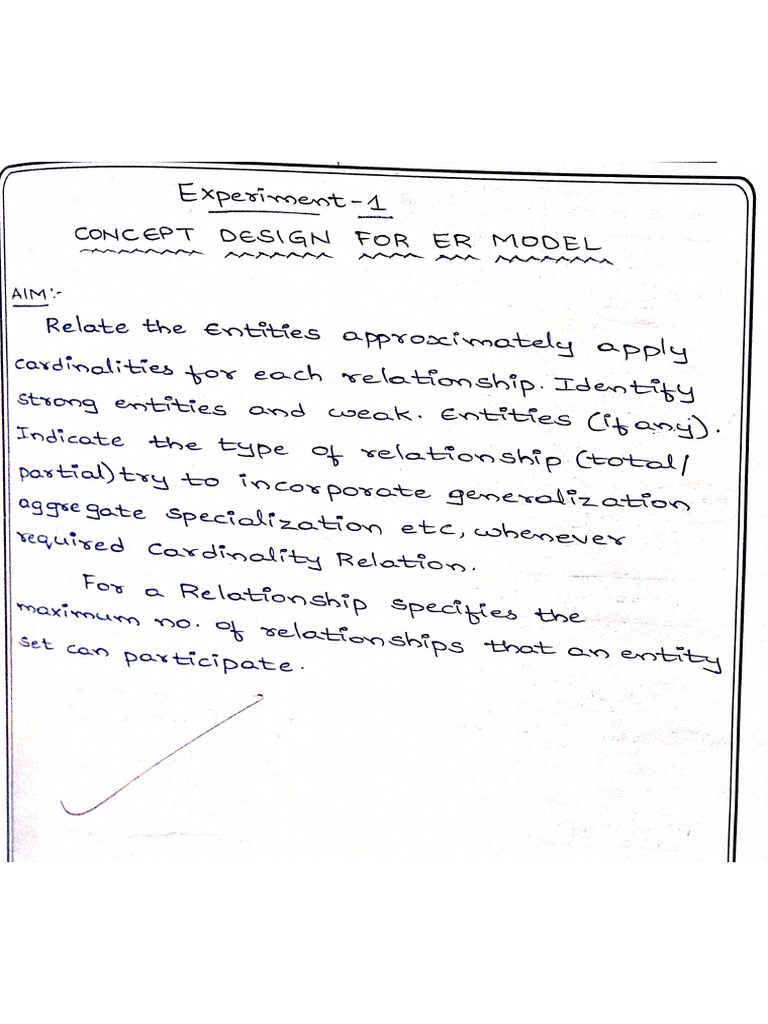 Experiment-1
CONCEPT DESIGN FOR ER MODEL
AIM:-
Relate the Entities approximately apply
cardinalities for each relationship. Identify
strong entities and weak. Entities (if any).
Indicate the type of relationship (total/
partial) try to incorporate generalization
aggregate specialization etc, whenever
required Cardinality Relation.
For a Relationship specifies the
maximum no. of relationships that an entity
set can participate.